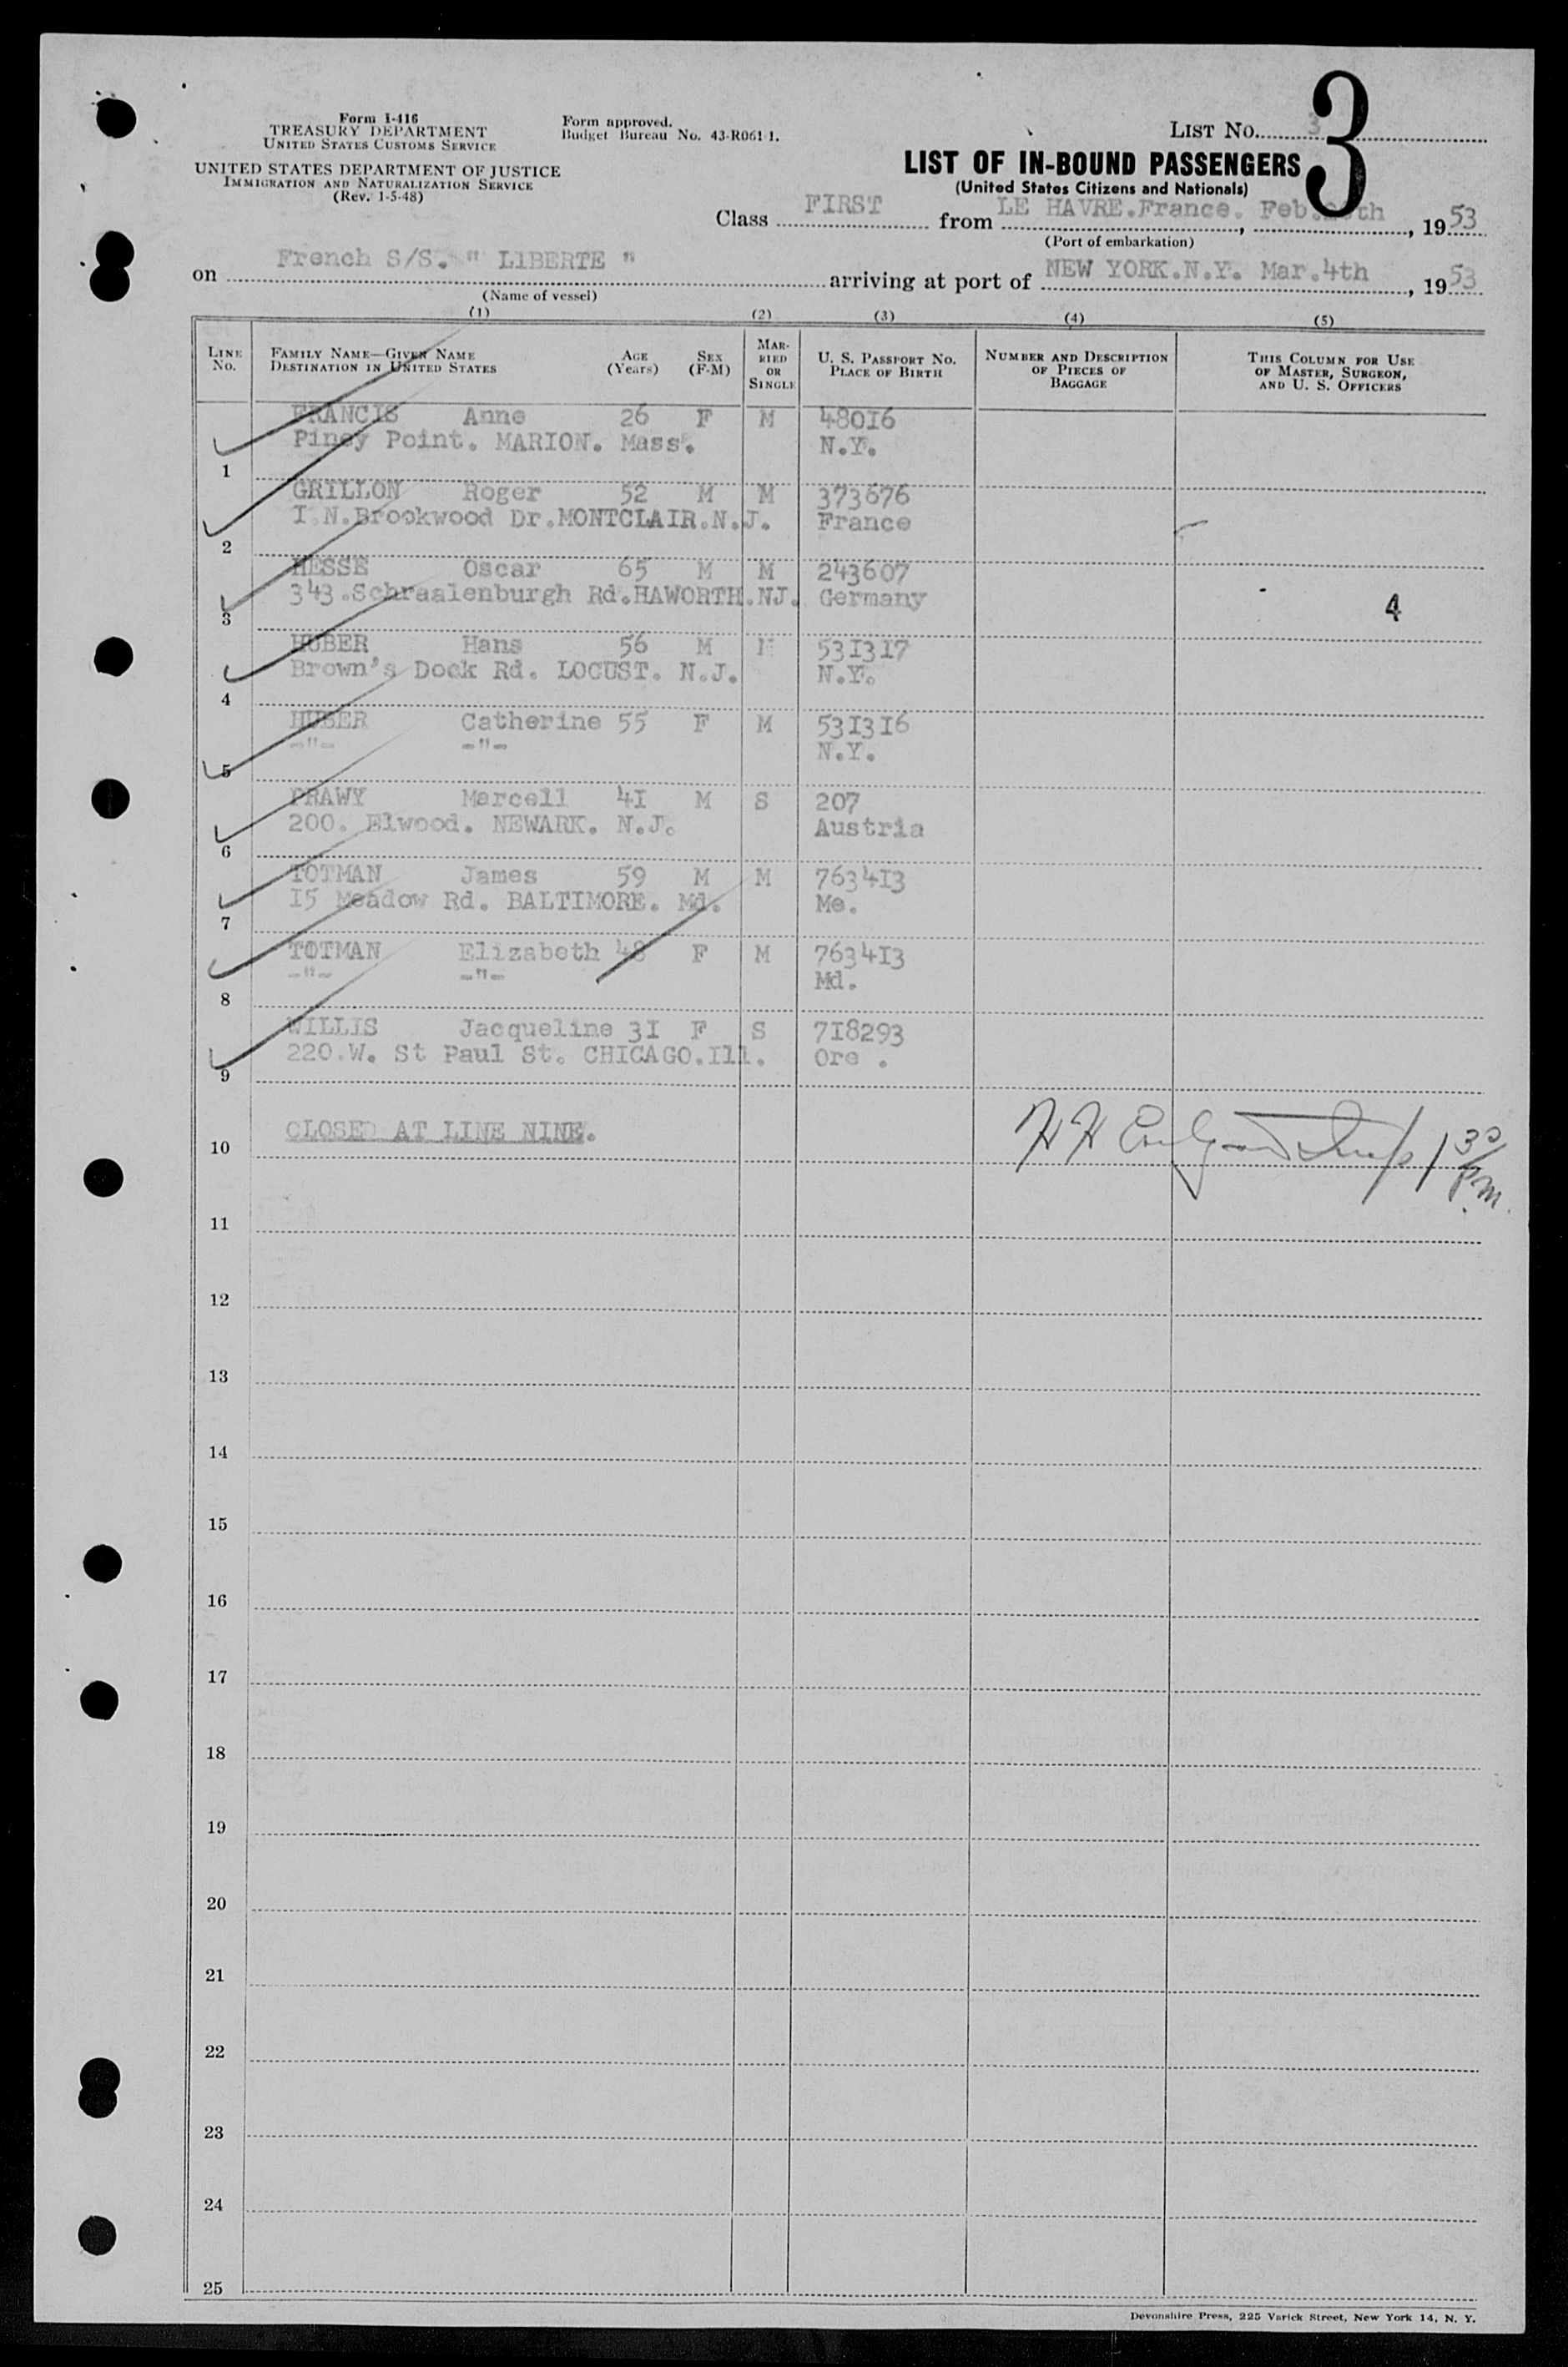 Form I-416
TREASURY DEPARTMENT
UNITED STATES CUSTOMS SERVICE
UNITED STATES DEPARTMENT OF JUSTICE
IMMIGRATION AND NATURALIZATION SERVICE
(Rev. 1-5-48)
Form approved.
Budget Bureau No. 43-R061 1.
LIST No. 3
3
LIST OF IN-BOUND PASSENGERS
(United States Citizens and Nationals)
Class FIRST from LE HAVRE.France. Feb. th, 1953
(Port of embarkation)
on French S/S. " LIBERTE " arriving at port of NEW YORK.N.Y. Mar.4th, 1953
(Name of vessel)
(1) (2) (3) (4) (5)
LINE No. FAMILY NAME—GIVEN NAME DESTINATION IN UNITED STATES AGE (Years) SEX (F-M) MARRIED OR SINGLE U. S. PASSPORT NO. PLACE OF BIRTH NUMBER AND DESCRIPTION OF PIECES OF BAGGAGE THIS COLUMN FOR USE OF MASTER, SURGEON, AND U. S. OFFICERS
FRANCIS Anne 26 F M 48016
1 Piney Point. MARION. Mass. N.Y.
GRILLON Roger 52 M M 373676
2 I.N.Brookwood Dr.MONTCLAIR.N.J. France
HESSE Oscar 65 M M 243607
3 343.Schraalenburgh Rd.HAWORTH.NJ. Germany 4
HUBER Hans 56 M M 531317
4 Brown's Dock Rd. LOCUST. N.J. N.Y.
HUBER Catherine 55 F M 531316
5 -"- -"- N.Y.
PRAWY Marcell 41 M S 207
6 200. Elwood. NEWARK. N.J. Austria
TOTMAN James 59 M M 763413
7 15 Meadow Rd. BALTIMORE. Md. Me.
TOTMAN Elizabeth 48 F M 763413
8 -"- -"- Md.
WILLIS Jacqueline 31 F S 718293
9 220.W. St Paul St. CHICAGO.Ill. Ore .
10 CLOSED AT LINE NINE. H H 1 30 pm.
11
12
13
14
15
16
17
18
19
20
21
22
23
24
25
Devonshire Press, 225 Varick Street, New York 14, N. Y.